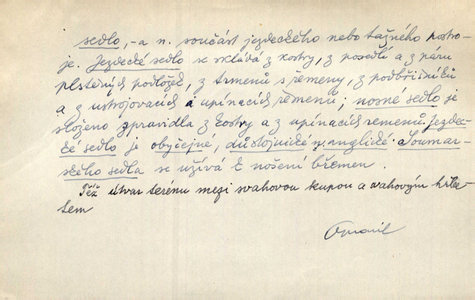 sedlo, -a n. součást jezdeckého nebo tažného postro-
je. Jezdecké sedlo se skládá z kostry, z posedlí a z páru
plstěných podložek, z třmenů s řemeny, z podbřišníků
a z ustrojovacích a upínacích řemenů; nosné sedlo je
složeno zpravidla z kostry a z upínacích řemenů. Jezdec-
ké sedlo je obyčejné, důstojnické, anglické. Soumar-
ského sedla se užívá k nošení břemen.
Též útvar terenu mezi svahovou kupou a svahovým hřbe-
tem